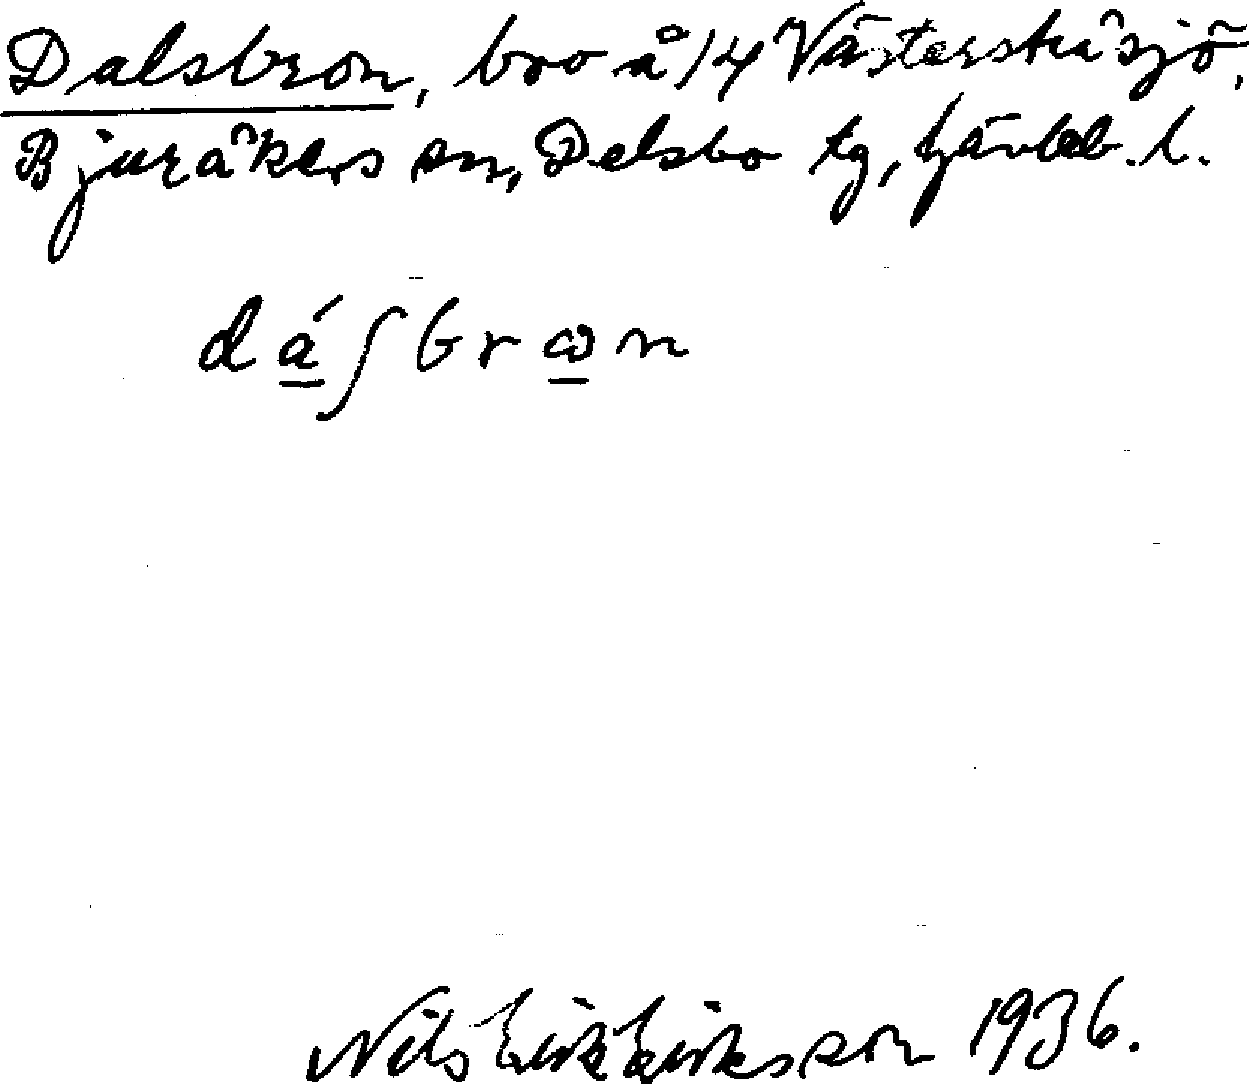 Dalsbron, bro å 1/4 Västerstråsjö,
Bjuråkers sn, Delsbo tg, Gävleb. l.
dá̱ʃbrω̱n
Nils Erik Eriksson 1936.